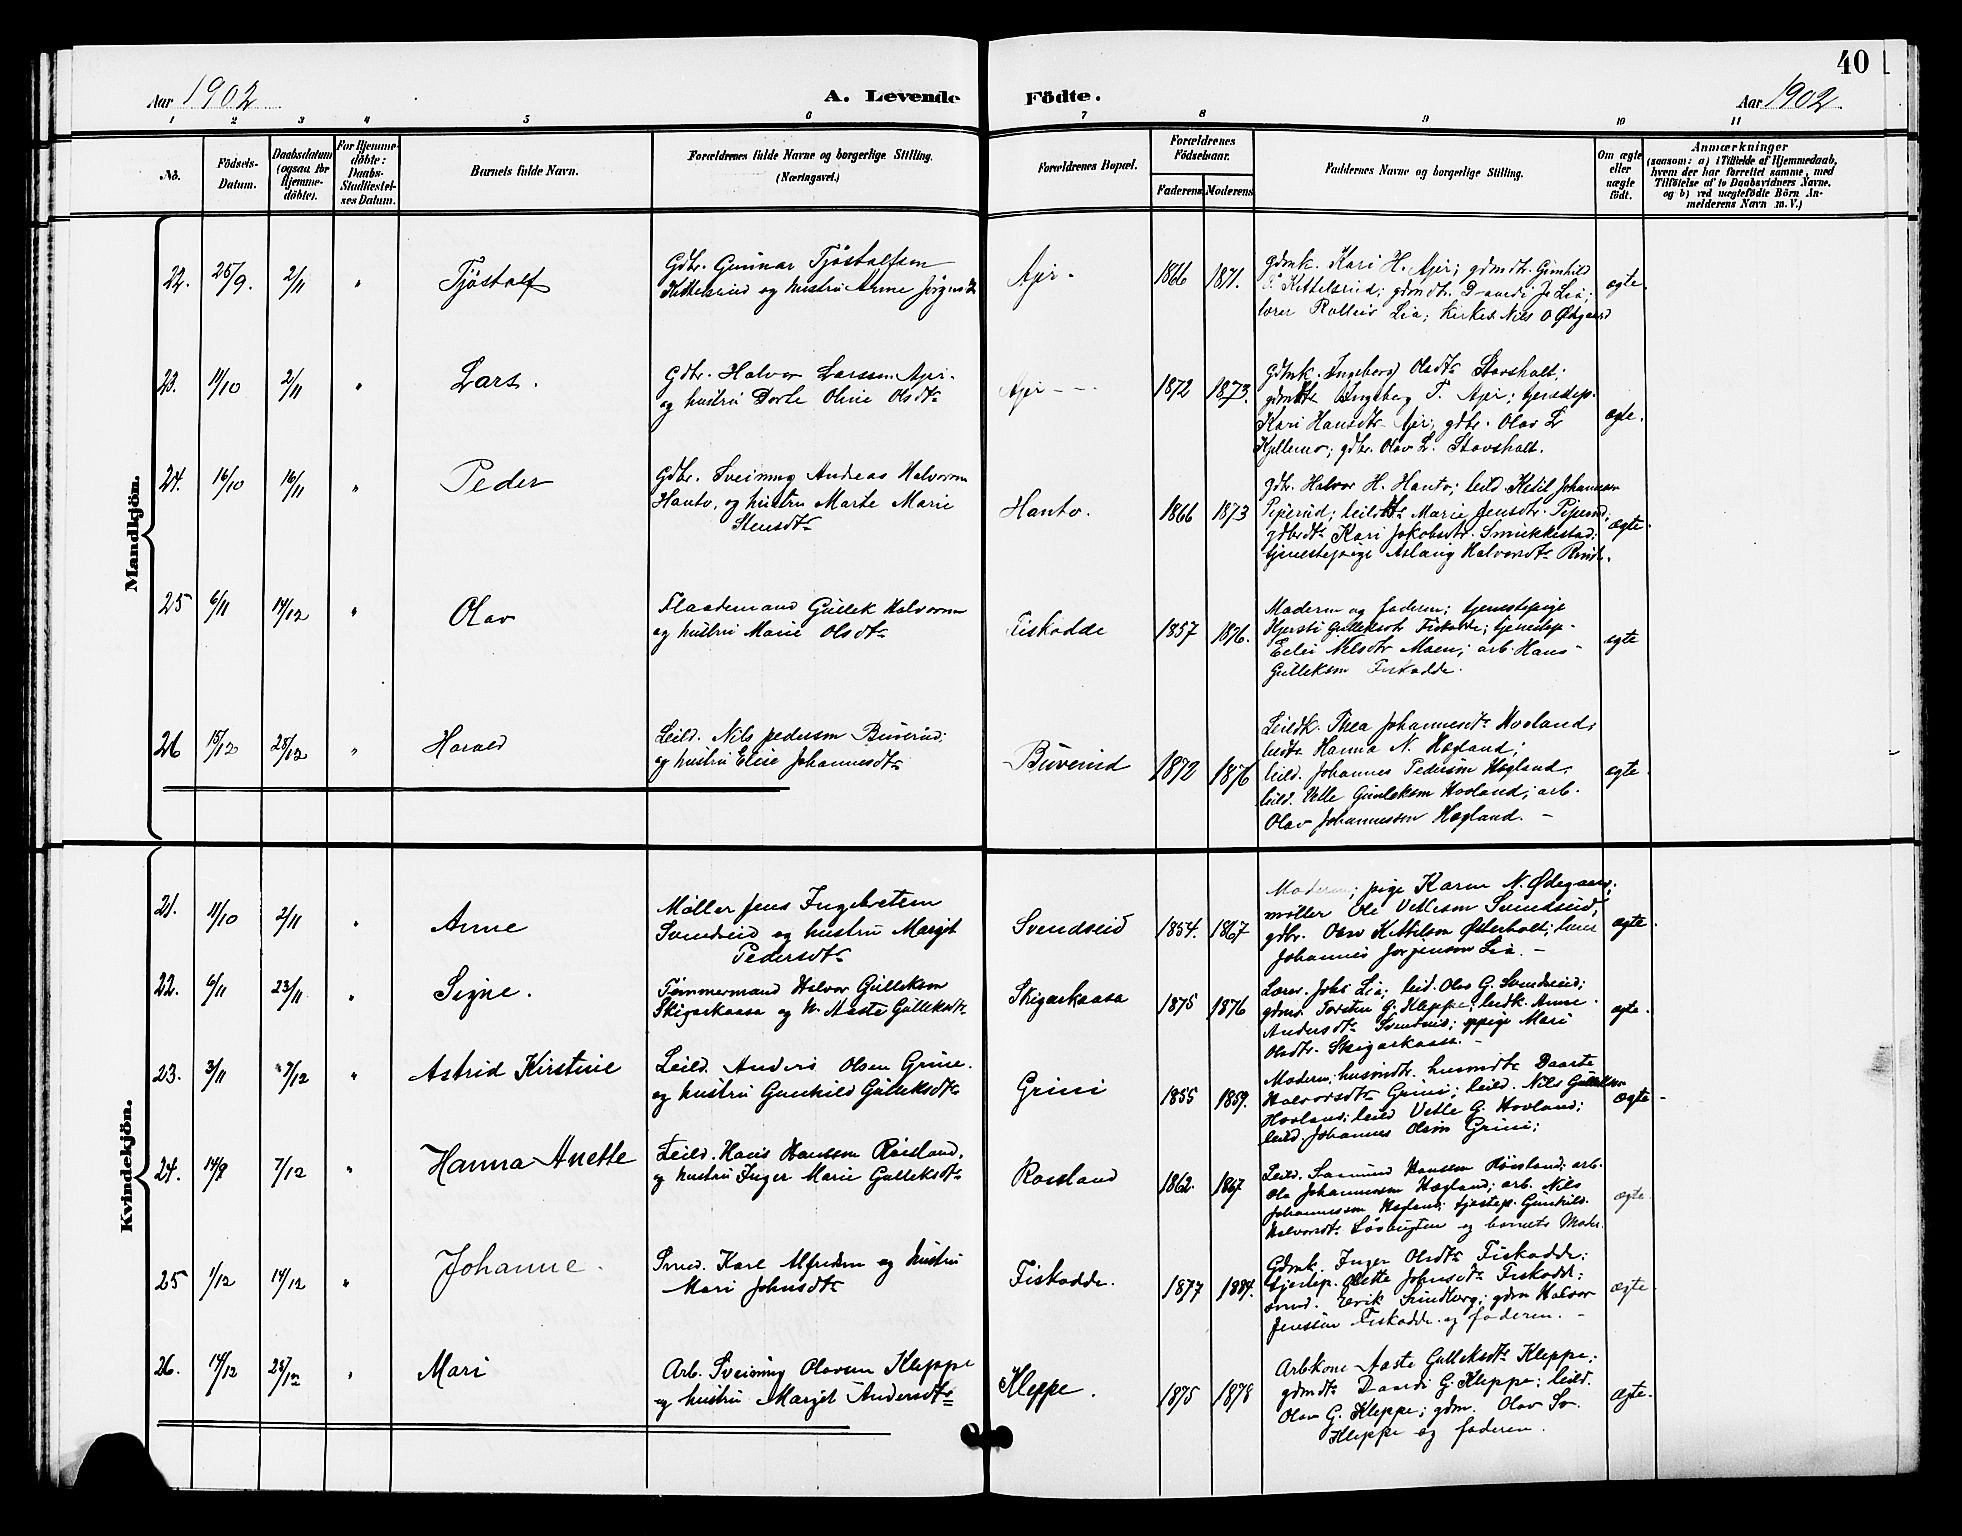 40
Aar 1902
A. Levende Födte.
Aar 1902.
1 2 3 4 5 6 7 8 9 10 11
No.
Födsels-
Datum.
Daabsdatum
(ogsaa for
Hjemme-
döbte).
For Hjemme-
döbte:
Daabs-
Stadfæstel-
ses Datum.
Barnets fulde Navn.
Forældrenes fulde Navne og borgerlige Stilling.
(Næringsvei.)
Forældrenes Bopæl.
Forældrenes
Födselsaar.
Faderens Moderens
Faddernes Navne og borgerlige Stilling.
Om ægte
eller
uægte
födt.
Anmærkninger
(saasom: a) i Tilfælde af Hjemmedaab,
hvem der har forrettet samme, med
Tilföielse af to Daabsvidners Navne,
og b) ved uægtefödte Börn An-
melderens Navn m. V.)
Mandkjön.
22. 25/9. 2/11 " Tjøstolf
Gdbr. Gunnar Tjøstolfsen
Kittelsrud og hustru Anne
Ajer. 1866 1871.
gdmk. Kari H. Ajer; gdmdtr. Gunhild
Kittelsrud; gdmdtr. Daardi J. Lia;
lærer Rolleiv Lia; kirkes. Nils O Ødegaard
ægte.
23. 11/10 2/11 " Lars.
Gdbr. Halvor Larssen Ajer.
og hustru Dorte Oline Olsdtr
Ajer 1872 1873.
Gdmk. Ingeborg Olsdtr Stavsholt;
gdmdtr Ingebog T. Ajer; tjenestep.
Kari Hansdtr Ajer; gdbr. Olav L
Kjellemo; gdbr. Olav L. Stavsholt.
ægte.
24. 16/10 16/11 " Peder
Gdbr. Sveinung Andreas Halvorsen
Hanto, og hustru Marte Marie
Stensdtr
Hanto. 1866 1873
Gdbr. Halvor H. Hanto; leild. Ketil Johannesen
Piperud; leildtr Marie Jensdtr. Piperud;
gdbrdtr Kari Jakobsdtr. Smukkestad;
tjenestepige Aslaug Halvorsdtr
ægte.
25 6/11 14/12 " Olav
Flaademand Gullek Halvorsen
og hustru Marie Olsdtr
Fiskodde 1857 1876.
Moderen og faderen; tjenestepige
Kjersti Gulleksdtr Fiskodde; tjenestep.
Nilsdtr Moen; arb. Hans
Gulleksen Fiskodde.
ægte
26 15/12 25/12 " Harald
Leild. Nils Pedersen Buverud;
og hustru Elise Johannesdtr
Buverud 1872 1876
Leildk. Thea Johannesdtr Hovland;
leildtr Hanna N. Hægland;
leild. Johannes Pedersen Hægland;
leild. Vetle Gunleksen Hovland; arb.
Olav Johannessen Hægland. -
ægte.
Kvindekjön.
21. 11/10 2/11 " Anne
Møller Jens Ingebretsen
Svendseid og hustru Margit
Pedersdtr
Svendseid 1854. 1867
Moderen; pige Karen N. Ødegaard;
møller Ole Vetlesen Svendseid;
gdbr. Olav Kittilsen Østerholt; lærer
Johannes Jørgensen Lia. -
ægte.
22. 6/11 23/11 " Signe.
Tømmermand Halvor Gulleksen
Skigarkaasa og h. Aaste Gulleksdtr
Skigarkaasa 1875 1876
Lærer. Johs Lia; leild. Olav G. Svendseid;
gdmd. Torsten G. Kleppe; leildk. Anne
Andersdtr Svendseid; pige Mari
Olsdtr. Skigarkaasa. -
ægte.
23. 3/11 7/12 " Astrid Kirstine
Leild. Anders Olsen Grini.
og hustru Gunhild Gulleksdtr
Grini 1855 1859.
Moderen; husmdtr. Daarte
Halvorsdtr Grini; leild. Nils Gulleksen
Hovland; leild Vetle G. Hovland;
leild. Johannes Olsen Grini;
ægte
24. 14/9 7/12 " Hanna Anette
Leild. Hans Hanssen Røisland,
og hustru Inger Marie Gulleksdtr
Røisland 1862. 1867
Leild. Saamund Hanssen Røisland; arb.
Ola Johannessen Hægland; arb. Nils
Johannessen Hægland; tjestep. Gunhild
Halvorsdtr og barnets Moder.
ægte.
25 1/12 14/12 " Johanne.
Smed. Karl Alfredsen og hustru
Mari Johnsdtr
Fiskodde. 1877 1884.
Gdmk. Inger Olsdtr Fiskodde;
tjestep. Olette Johnsdtr Fiskodde;
smed. Erik Sundberg; gdm Halvor
Jenssen Fiskodde og faderen. -
ægte.
26. 14/12 25/12 " Mari
Arb. Sveinung Olavsen Kleppe
og hustru Margit Andersdtr
Kleppe. 1875 1878
Arbkone Aaste Gulleksdtr Kleppe;
gdmdtr Daardi G. Kleppe; leild.
Olav G. Kleppe; gdm. Olav Sv.
Kleppe og faderen.
Ægte.